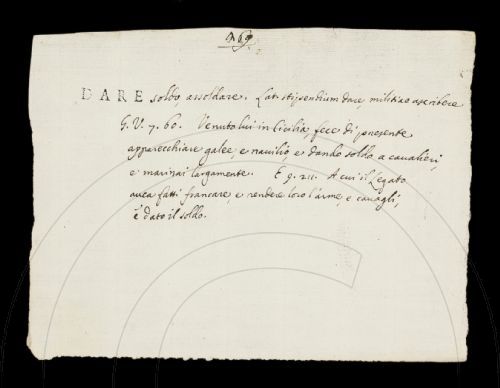 969
DARE soldo, assoldare. Lat. stipendium dare, militiae ascribere
G. V. 7. 60. Venuto lui in Cicilia, fece di presente
apparecchiare galee, e navilio, e dando soldo a cavalieri,
e marinai largamente. E 9. 211. A cui il Legato
avea fatti francare e rendere loro l'arme, e cavagli,
e dato il soldo.